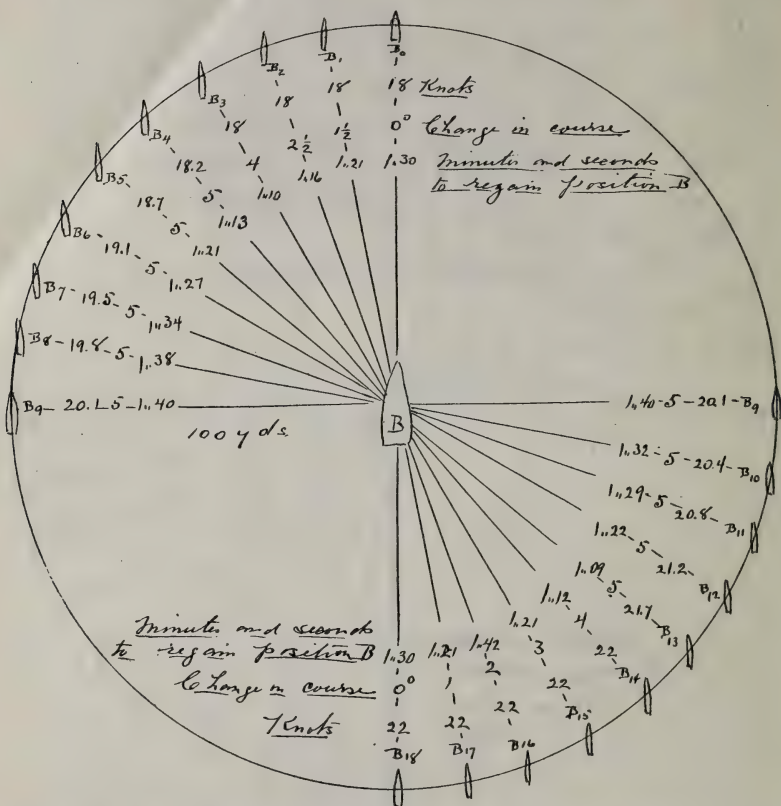 B0
18 Knots
0° Change in course
1,,30 Minutes and seconds
to regain position B
B1
18
1 1/2
1,,21
B2
18
2 1/2
1,,16
B3
18
4
1,,10
B4
18.2
5
1,,13
B5
18.7
5
1,,21
B6-19.1-5-1,,27
B7-19.5-5-1,,34
B8-19.8-5-1,,38
B9-20.1-5-1,,40
100 yds.
B
1,,40-5-20.1-B9
1,,32-5-20.4-B10
1,,29-5-20.8-B11
1,,22
5
21.2-B12
1,,09
5
21.7
B13
1,,12
4
22
B14
1,,21
3
22
B15
1,,42
2
22
B16
1,,21
1
22
B17
Minutes and seconds
to regain position B 1,,30
Change in course 0°
Knots 22
B18